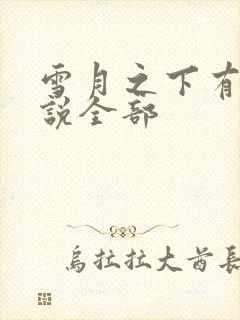 雪月之下有
說全部
烏拉拉大酋長